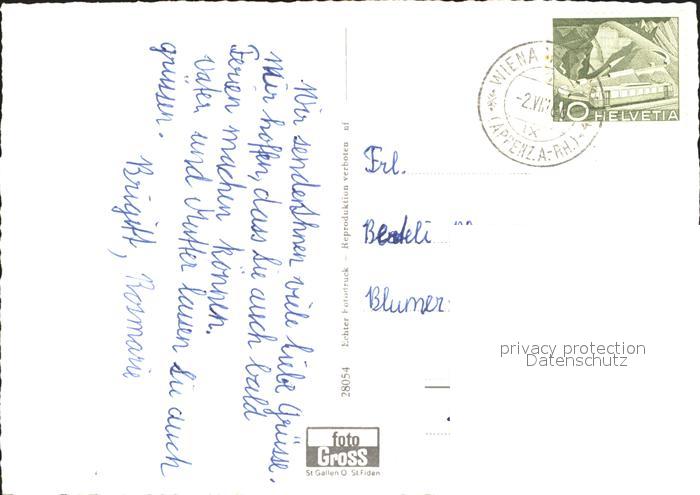 Wir senden Ihnen viele liebe Grüsse.
Wir hoffen, dass Sie auch bald
Ferien machen können.
Vater und Mutter lassen Sie auch
grüssen.
Brigitt, Rosmarie
28054 Echter Fototruck – Reproduktion verboten
foto
Gross
St Gallen O St Fiden
WIENA
-2.VII
IX
(APPENZ. A.-RH.)
10
HELVETIA
Frl.
Blumer
privacy protection
Datenschutz